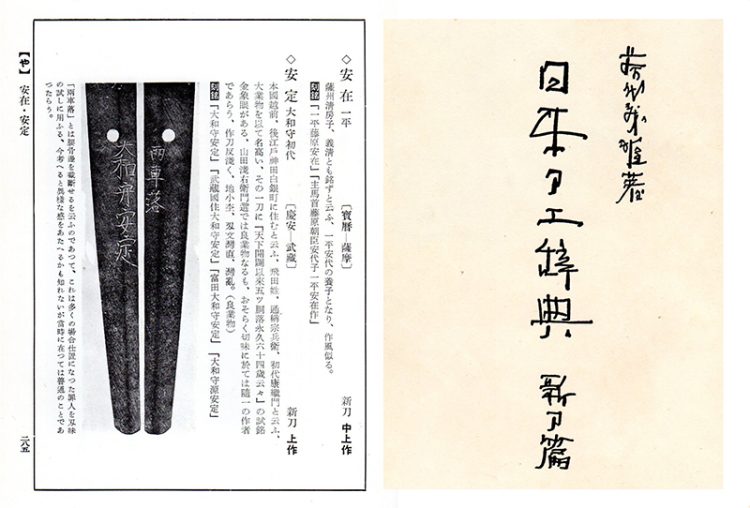 藤代義雄著
日本刀工辞典 新刀篇
◇ 安在 一平 〔寶暦―薩摩〕 新刀 中上作
薩州清房子、義清とも銘ずと云ふ、一平安代の養子となり、作風似る。
刻銘「一平藤原安在」「主馬首藤原朝臣安代子一平安在作」
◇ 安定 大和守初代 〔慶安―武藏〕 新刀 上作
本國越前、後江戸神田白銀町に住むと云ふ、飛田姓、通稱宗兵衛、初代康繼門と云ふ、
大業物を以て名高い、その一刀に『天下開闢以來五ツ胴落永久六十四歳云々』の試銘
金象嵌がある、山田淺右衛門選では良業物なるも、おそらく切味に於ては隨一の作者
であらう、作刀反淺く、地小杢、刄文灣直、灣亂。(良業物)
刻銘「大和守安定」「武藏國住大和守安定」「富田大和守安定」「大和守源安定」
兩車落
大和守安定
「兩車落」とは腰骨邊を截斷せるを云ふのであつて、これは多くの場合仕置になつた罪人を刄味
の試しに用ふる、今考へると異樣な感をあたへるかも知れないが當時に在つては普通のことであ
つたらう。
【や】 安在・安定
二八五